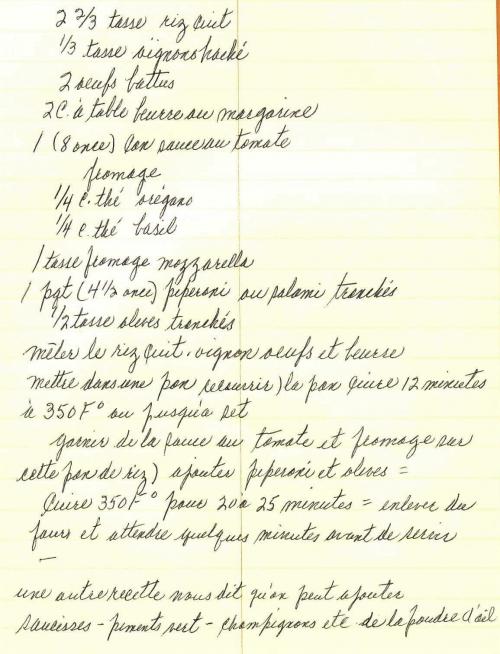 2 2/3 tasse riz cuit
1/3 tasse oignons haché
2 oeufs battus
2 C. à table beurre ou margarine
1 (8 once) can sauce au tomate
fromage
1/4 c. thé orégano
1/4 c. thé basil
1 tasse fromage mozzarella
1 pqt (4 1/2 once) piperoni ou salami tranchés
1/2 tasse olives tranchés
mêler le riz cuit. oignon oeufs et beurre
mettre dans une pan (recourrir) la pan cuire 12 minutes
à 350 F° ou jusqu'a set
garnir de la sauce au tomate et fromage sur
cette pan de riz) ajouter piperoni et olives =
Cuire 350 F° pour 20 à 25 minutes = enlever du
four et attendre quelques minutes avant de servir
—
une autre recette nous dit qu'on peut ajouter
saucisses - piments vert - champignons etc de la poudre d'ail